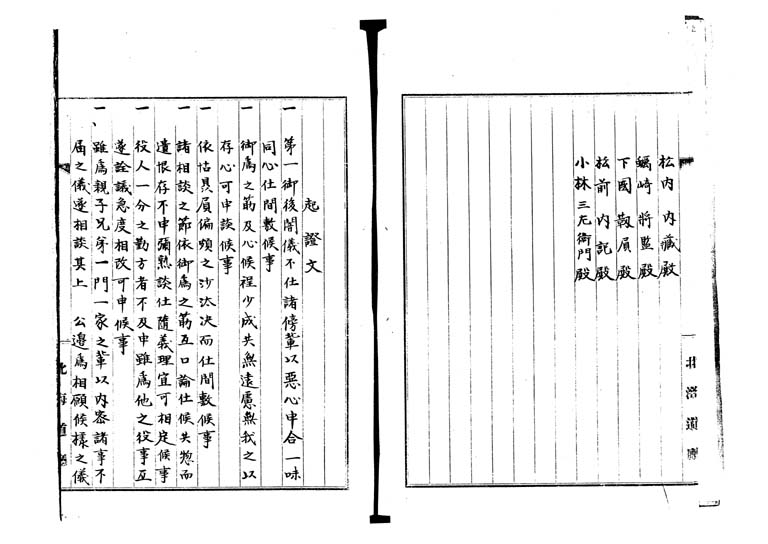 松内内蔵殿
蠣崎将監殿
下國靱屓殿
松前内記殿
小林三左衛門殿
北海道廳
起證文
一第一御後闇儀不仕諸傍輩以悪心申合一味
同心仕間敷候事
一御為之筋及心候程少成共無遠慮無我之以
存心可申談候事
一依怙贔屓偏頗之沙汰决而仕間敷候事
一諸相談之節依御為之筋互口論仕候共惣而
遺恨存不申彌熟談仕随義理宜可相定候事
一役人一分之勤方者不及申雖為他之役事互
遂詮議急度相改可申候事
一、雖為親子兄弟一門一家之輩以内密諸事不
届之儀遂相談其上 公邉為相願候様之儀
北海道廳